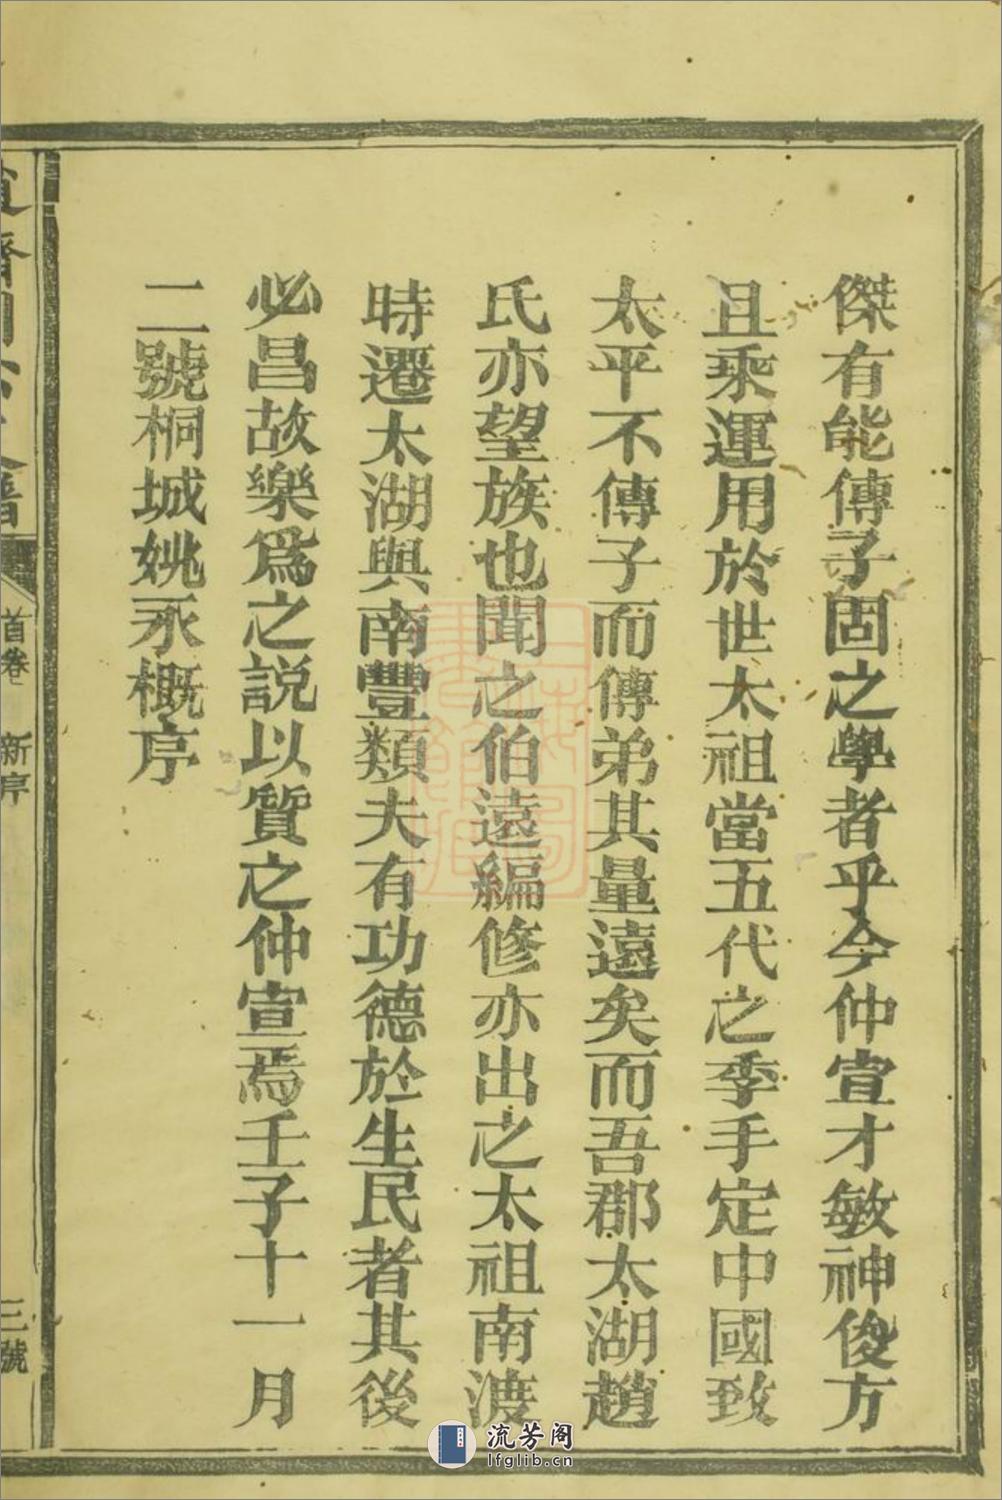 傑有能傳子固之學者乎今仲宣才敏神俊方
且乘運用於世太祖當五代之季手定中國致
太平不傳子而傳弟其量遠矣而吾郡太湖趙
氏亦望族也聞之伯遠編修亦出之太祖南渡
時遷太湖與南豐類夫有功德於生民者其後
必昌故樂爲之說以質之仲宣焉壬子十一月
二號桐城姚永概序
首卷 新序
三號
流芳阁
lfglib.cn